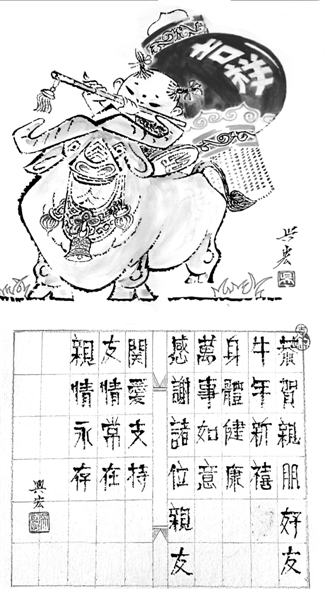 吉祥
兴宏
恭賀親朋好友
牛年新禧
身體健康
萬事如意
感謝諸位親友
關愛支持
友情常在
親情永存
興宏